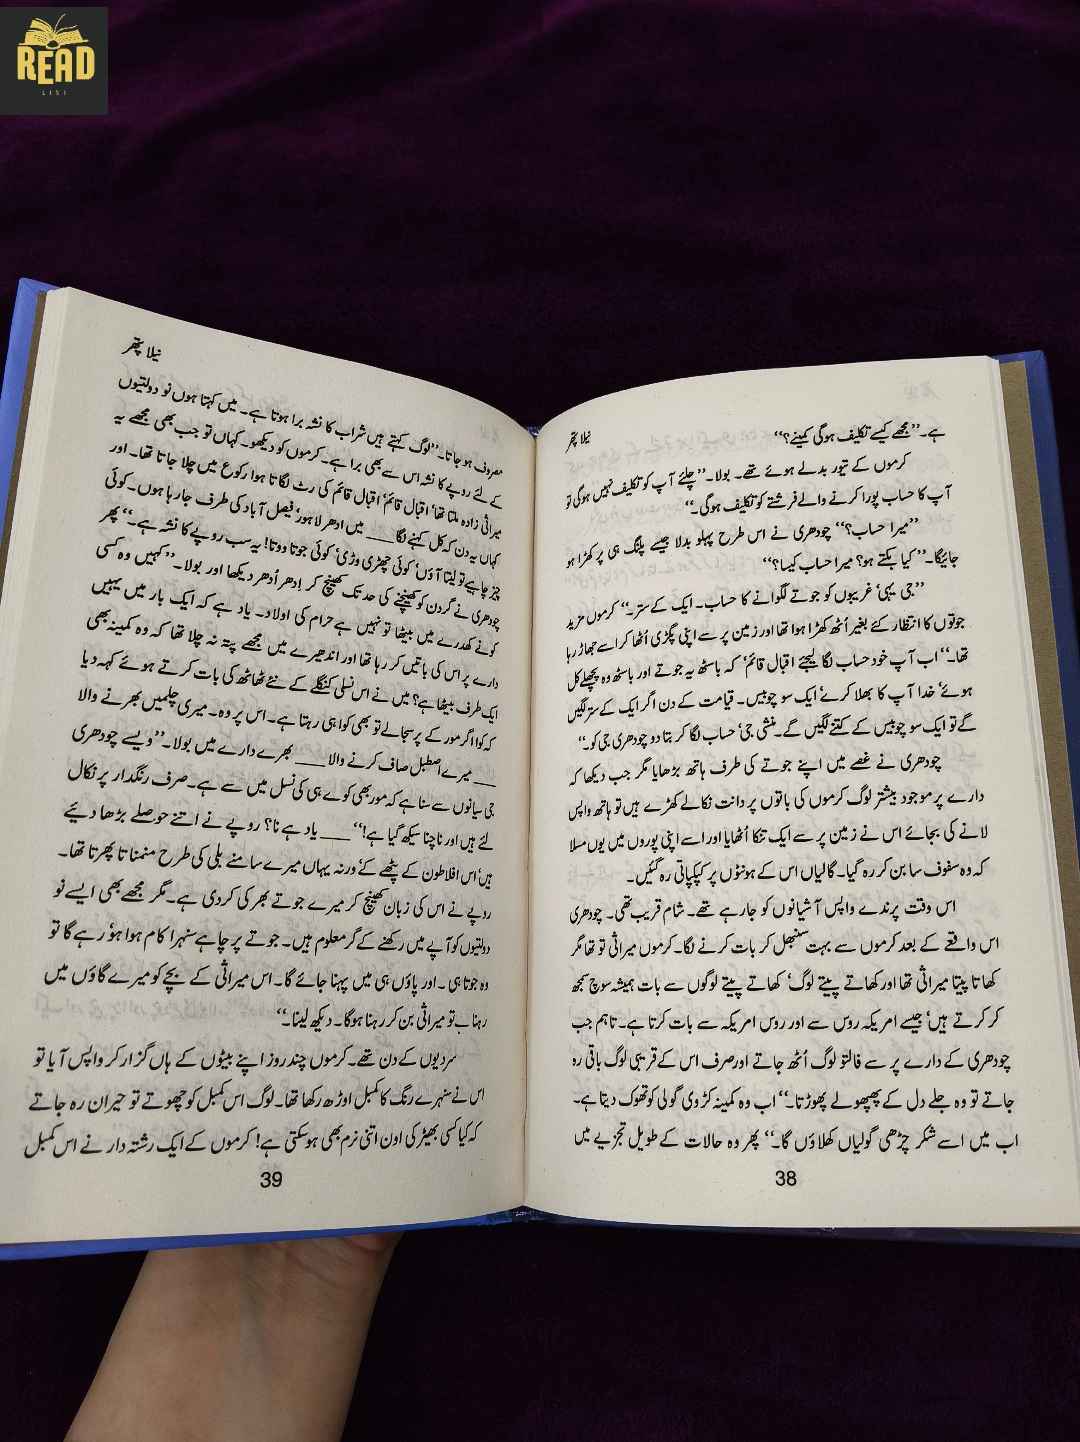 READ
LISI
نیلا پتھر
ہے۔’’مجھے کیسے تکلیف ہوگی کمینے؟‘‘
کرموں کے تیور بدلے ہوئے تھے۔ بولا۔ ’’چلئے آپ کو تکلیف نہیں ہوگی تو
آپ کا حساب پورا کرنے والے فرشتے کو تکلیف ہوگی۔‘‘
’’میرا حساب؟‘‘ چودھری نے اس طرح پہلو بدلا جیسے پلنگ ہی پر کھڑا ہو
جائیگا۔ ’’کیا بکتے ہو؟ میرا حساب کیسا؟‘‘
’’جی یہی‘ غریبوں کو جوتے لگوانے کا حساب۔ ایک کے ستر۔‘‘ کرموں مزید
جوتوں کا انتظار کئے بغیر اُٹھ کھڑا ہوا تھا اور زمین پر سے اپنی پگڑی اُٹھا کر اسے جھاڑ رہا
تھا۔ ’’اب آپ خود حساب لگا لیجئے اقبال قائم‘ کہ باسٹھ یہ جوتے اور باسٹھ وہ پچھلے کل
ہوئے‘ خدا آپ کا بھلا کرئے‘ ایک سو چوبیس۔ قیامت کے دن اگر ایک کے ستر لگیں
گے تو ایک سو چوبیس کے کتنے لگیں گے۔ منشی جی‘ حساب لگا کر بتا دو چودھری جی کو۔‘‘
چودھری نے غصے میں اپنے جوتے کی طرف ہاتھ بڑھایا مگر جب دیکھا کہ
دارے پر موجود بیشتر لوگ کرموں کی باتوں پر دانت نکالے کھڑے ہیں تو ہاتھ واپس
لانے کی بجائے اس نے زمین پر سے ایک تنکا اُٹھایا اور اسے اپنی پوروں میں یوں مسلا
کہ وہ سفوف سا بن کر رہ گیا۔ گالیاں اس کے ہونٹوں پر کپکپاتی رہ گئیں۔
اس وقت پرندے واپس آشیانوں کو جا رہے تھے۔ شام قریب تھی۔ چودھری
اس واقعے کے بعد کرموں سے بہت سنبھل کر بات کرنے لگا۔ کرموں میراثی تو تھا مگر
کھاتا پیتا میراثی تھا اور کھاتے پیتے لوگ‘ کھاتے پیتے لوگوں سے بات ہمیشہ سوچ سمجھ
کر کرتے ہیں‘ جیسے امریکہ روس سے اور روس امریکہ سے بات کرتا ہے۔ تاہم جب
چودھری کے دارے پر سے فالتو لوگ اُٹھ جاتے اور صرف اس کے قریبی لوگ باقی رہ
جاتے تو وہ جلے دل کے پھپھولے پھوڑتا۔ ’’اب وہ کمینہ کڑوی گولی کو تھوک دیتا ہے۔
اب میں اسے شکر چڑھی گولیاں کھلاؤں گا۔‘‘ پھر وہ حالات کے طویل تجزیے میں
38
نیلا پتھر
مصروف ہو جاتا۔ ’’لوگ کہتے ہیں شراب کا نشہ برا ہوتا ہے۔ میں کہتا ہوں نو دولتیوں
کے لئے روپے کا نشہ اس سے بھی برا ہے۔ کرموں کو دیکھو۔ کہاں تو جب بھی مجھے یہ
میراثی زادہ ملتا تھا‘ اقبال قائم‘ اقبال قائم کی رٹ لگاتا ہوا رکوع میں چلا جاتا تھا۔ اور
کہاں یہ دن کہ کل کہنے لگا ___ میں ادھر لاہور‘ فیصل آباد کی طرف جا رہا ہوں۔ کوئی
چیز چاہیے تو لیتا آؤں‘ کوئی چھڑی وڑی‘ کوئی جوتا ووتا! یہ سب روپے کا نشہ ہے۔‘‘ پھر
چودھری نے گردن کو کھینچنے کی حد تک کھینچ کر اِدھر اُدھر دیکھا اور بولا۔ ’’کہیں وہ کسی
کونے کھدرے میں بیٹھا تو نہیں ہے حرام کی اولاد۔ یاد ہے کہ ایک بار میں یہیں
دارے پر اس کی باتیں کر رہا تھا اور اندھیرے میں مجھے پتہ نہ چلا تھا کہ وہ کمینہ بھی
ایک طرف بیٹھا ہے؟ میں نے اس نسلی کنگلے کے نئے ٹھاٹھ کی بات کرتے ہوئے کہہ دیا
کہ کوا اگر مور کے پر سجالے تو بھی کوا ہی رہتا ہے۔ اس پر وہ۔ میری چلمیں بھرنے والا
___ میرے اصطبل صاف کرنے والا ___ بھرے دارے میں بولا۔ ’’ویسے چودھری
جی سیانوں سے سنا ہے کہ مور بھی کوے ہی کی نسل میں سے ہے۔ صرف رنگدار پر نکال
لئے ہیں اور ناچنا سیکھ گیا ہے!‘‘ ___ یاد ہے نا؟ روپے نے اتنے حوصلے بڑھا دیئے
ہیں‘ اس افلاطون کے پٹھے کے‘ ورنہ یہاں میرے سامنے بلی کی طرح منمناتا پھرتا تھا۔
روپے نے اس کی زبان کھینچ کر میرے جوتے بھر کی کر دی ہے۔ مگر مجھے بھی ایسے نو
دولتیوں کو آپے میں رکھنے کے گر معلوم ہیں۔ جوتے پر چاہے سنہرا کام ہوا ہو‘ رہے گا تو
وہ جوتا ہی۔ اور پاؤں ہی میں پہنا جائے گا۔ اس میراثی کے بچے کو میرے گاؤں میں
رہنا ہے تو میراثی بن کر رہنا ہوگا۔ دیکھ لینا۔‘‘
سردیوں کے دن تھے۔ کرموں چند روز اپنے بیٹوں کے ہاں گزار کر واپس آیا تو
اس نے سنہرے رنگ کا کمبل اوڑھ رکھا تھا۔ لوگ اس کمبل کو چھوتے تو حیران رہ جاتے
کہ کیا کسی بھیڑ کی اون اتنی نرم بھی ہو سکتی ہے! کرموں کے ایک رشتہ دار نے اس کمبل
39